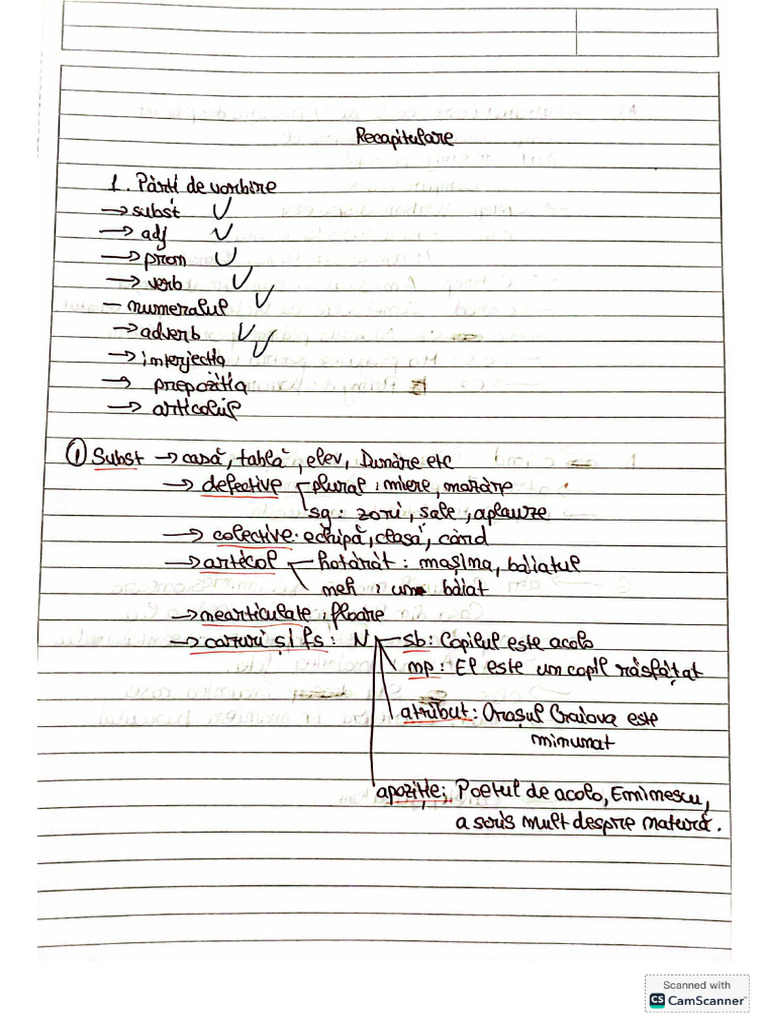 Recapitulare
1. Părți de vorbire
→ subst ✓
→ adj ✓
→ pron ✓
→ verb ✓
– numeralul ✓
→ adverb ✓
→ interjecția ✓
→ prepoziția
→ articolul
① Subst → casă, tablă, elev, Dunăre etc
→ defective plural: miere, mazăre
sg: zori, șale, aplauze
→ colective: echipă, clasă, cârd
→ articol hotărât: mașina, băiatul
neh: un băiat
→ nearticulate: floare
→ cazuri și fs: N – sb: Copilul este acolo
mp: El este un copil răsfățat
atribut: Orașul Craiova este
minunat
apoziție: Poetul de acolo, Eminescu,
a scris mult despre natură.
Scanned with
CS CamScanner